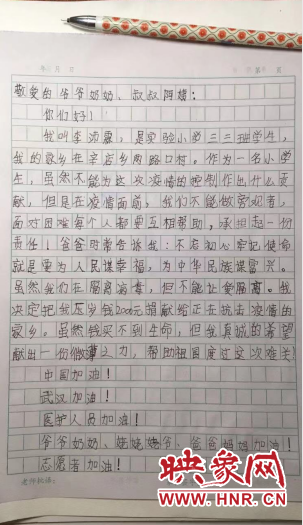 年 月 日
第 页
敬爱的爷爷奶奶、叔叔阿姨：
你们好！
我叫李沛霖，是实验小学三三班学生，
我的家乡在辛店乡两路口村。作为一名小学
生，虽然不能为这次疫情的控制作出什么贡
献，但是在疫情面前，我们不能做旁观者，
面对困难每个人都要互相帮助，承担起一份
责任！爸爸时常告诉我：不忘初心牢记使命
就是要为人民谋幸福，为中华民族谋富兴。
虽然我们在隔离病毒，但不能让爱隔离。我
决定把我压岁钱2000元捐献给正在抗击疫情的
家乡。虽然钱买不到生命，但我真诚的希望
献出一份微薄之力，帮助祖国度过这次难关
中国加油！
武汉加油！
医护人员加油！
爷爷奶奶、姥姥姥爷、爸爸妈妈加油！
志愿者加油！
老师批语：
映象网
www.HNR.CN